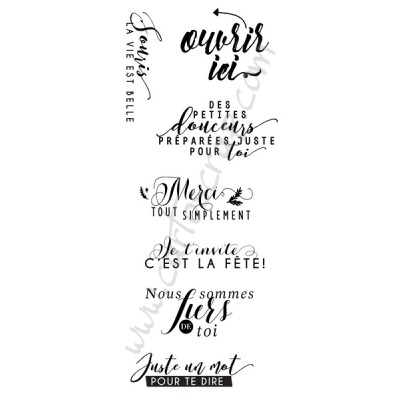 Souris
LA VIE EST BELLE
ouvrir
ici
DES
PETITES
douceurs
PRÉPARÉES JUSTE
POUR toi
Merci
TOUT SIMPLEMENT
Je t'invite
C'EST LA FÊTE!
Nous sommes
fiers
DE
toi
Juste un mot
POUR TE DIRE